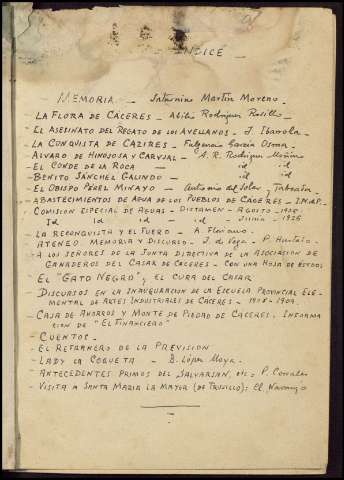 INDICE —
MEMORIA — Saturnino Martín Moreno —
- LA FLORA DE CÁCERES — Abilio Rodríguez Rosillo —
- EL ASESINATO DEL REGATO DE LOS AVELLANOS — J. Ibarrola —
- LA CONQUISTA DE CÁCERES — Fulgencio García Osma —
- ALVARO DE HINOJOSA Y CARVAJAL — A. R. Rodríguez Moñino
- EL CONDE DE LA ROCA — id id
- BENITO SÁNCHEZ GALINDO — id id
- EL OBISPO PÉREZ MINAYO — Antonio del Solar y Taboada
- ABASTECIMIENTOS DE AGUA DE LOS PUEBLOS DE CÁCERES — I.N.d.P.
- COMISION ESPECIAL DE AGUAS — DICTAMEN — AGOSTO — 1925 —
Id id — id — id Junio — 1926
- LA RECONQUISTA Y EL FUERO — A. Floriano —
- ATENEO MEMORIA Y DISCURSO — J. de Vega — P. Hurtado —
- A LOS SEÑORES DE LA JUNTA DIRECTIVA DE LA ASOCIACION DE
GANADEROS DEL CASAR DE CÁCERES — CON UNA HOJA DE
- EL "GATO NEGRO", y EL CURA DEL CASAR
- DISCURSOS EN LA INAUGURACION DE LA ESCUELA PROVINCIAL ELE-
MENTAL DE ARTES INDUSTRIALES DE CÁCERES — 1908 - 1909 —
- CAJA DE AHORROS Y MONTE DE PIEDAD DE CACERES. INFORMA
CION DE "EL FINANCIERO"
- CUENTOS —
- EL REFRANERO DE LA PREVISION
- LADY LA COQUETA — B. López Moya —
- ANTECEDENTES PRIMOS DEL SALVARSAN, etc = P. Corrales
- VISITA A SANTA MARIA LA MAYOR (DE TRUJILLO): Cl. Naranjo